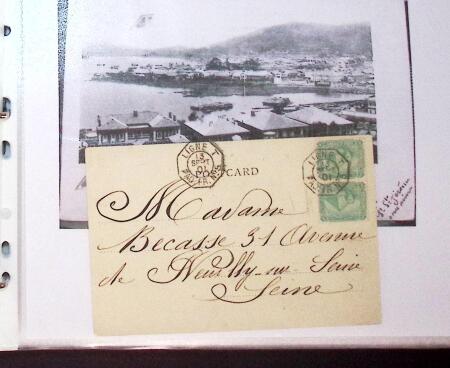 LIGNE
13
SEPT
01
POST CARD
LIGNE
01
Madame
Becasse 31 Avenue
de Neuilly-sur-Seine
Seine